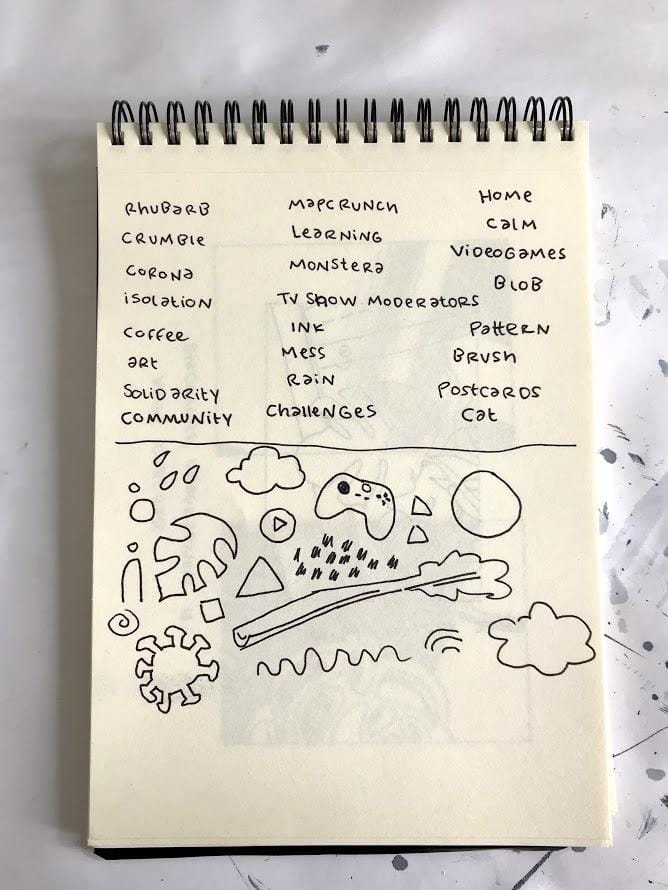 RHUBARB
CRUMBLE
CORONA
ISOLATION
COFFEE
ART
SOLIDARITY
COMMUNITY
MAPCRUNCH
LEARNING
MONSTERA
TV SHOW MODERATORS
INK
MESS
RAIN
CHALLENGES
HOME
CALM
VIDEOGAMES
BLOB
PATTERN
BRUSH
POSTCARDS
CAT